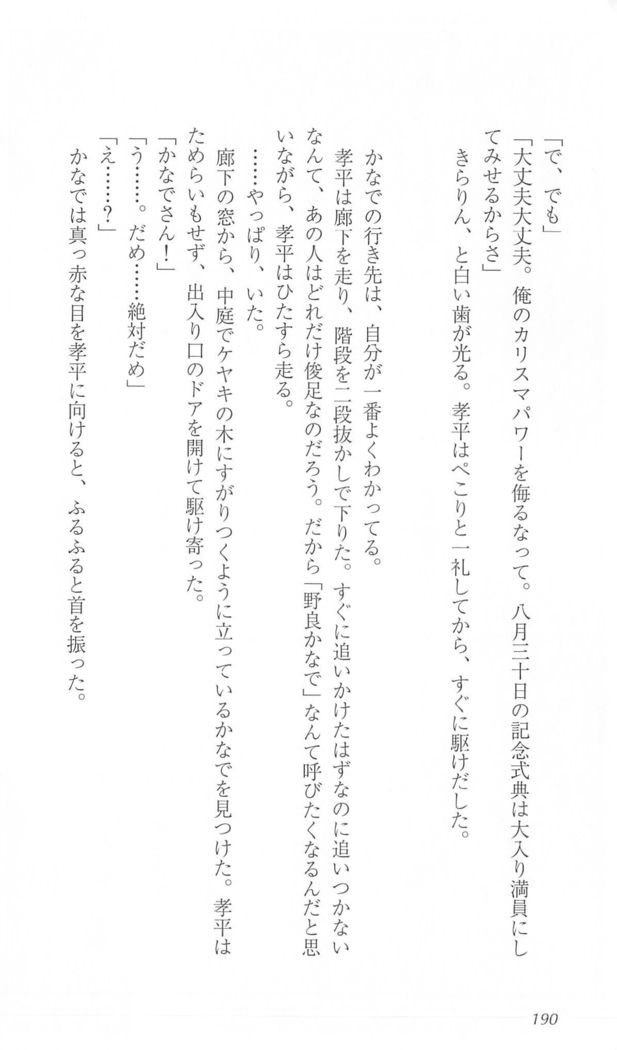 「で、でも」
「大丈夫大丈夫。俺のカリスマパワーを侮るなって。八月三十日の記念式典は大入り満員にし
てみせるからさ」
きらりん、と白い歯が光る。孝平はぺこりと一礼してから、すぐに駆けだした。
かなでの行き先は、自分が一番よくわかってる。
孝平は廊下を走り、階段を二段抜かしで下りた。すぐに追いかけたはずなのに追いつかない
なんて、あの人はどれだけ俊足なのだろう。だから「野良かなで」なんて呼びたくなるんだと思
いながら、孝平はひたすら走る。
……やっぱり、いた。
廊下の窓から、中庭でケヤキの木にすがりつくように立っているかなでを見つけた。孝平は
ためらいもせず、出入り口のドアを開けて駆け寄った。
「かなでさん！」
「う……。だめ……絶対だめ」
「え……？」
かなでは真っ赤な目を孝平に向けると、ふるふると首を振った。
190